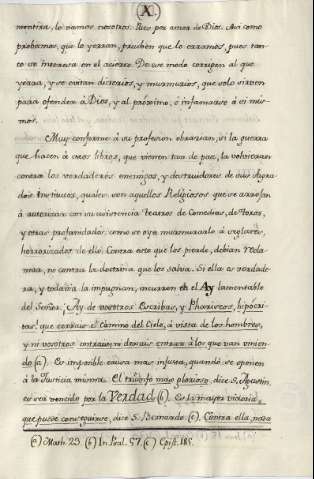 (A.)
mentira, lo somos nosotros. Pues por amor de Dios. Asi como
probamos, que lo yerran, prueben que lo erramos, pues tan-
to se interesa en el acierto. De ese modo corrigen al que
yerra, y se evitan discursos, y murmurios, que solo sirven
para ofender a Dios, y al proximo, e infamarse á si mis-
mos.
Muy conforme á su profesion obrarian, si la guerra
que hacen à esos libros, que vienen tan de paz, la volvieran
contra los verdaderos enemigos, y destruidores de sus Sagra-
dos Institutos, quales son aquellos Religiosos que se arrojan
à autorizar con su asistencia Teatros de Comedias, de Toros,
y otras profanidades como se oye murmurarlo á seglares
horrorizados de ello. Contra esto que los pierde, debian decla-
mar, no contra la doctrina que los salva. Si ella es verdade-
ra, y todavia la impugnan, incurren en el Ay lamentable
del Señor: Ay de vosotros Escribas, y Phariseos, hipócri-
tas! que cerrais el Camino del Cielo, a vista de los hombres,
y ni vosotros entrais, ni dexais entrar à los que van vinien-
do (a). Es imposible causa mas injusta, quando se oponen
à la Justicia misma. El triunfo mas glorioso, dice S. Agustin,
es ser vencido por la Verdad (b). Es la mayor victoria,
que puede conseguirse, dice S. Bernardo (c). Contra ella nada
(a) Math. 23. (b) In Psal. 57. (c) Epist. 185.